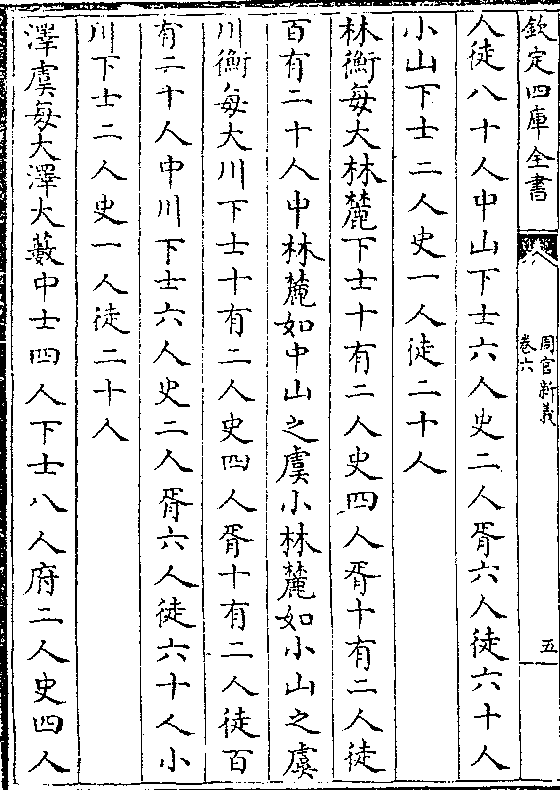 欽定四庫全書
周官新義
卷六
五
人徒八十人中山下士六人史二人胥六人徒六十人
小山下士二人史一人徒二十人
林衡每大林麓下士十有二人史四人胥十有二人徒
百有二十人中林麓如中山之虞小林麓如小山之虞
川衡每大川下士十有二人史四人胥十有二人徒百
有二十人中川下士六人史二人胥六人徒六十人小
川下士二人史一人徒二十人
澤虞每大澤大藪中士四人下士八人府二人史四人